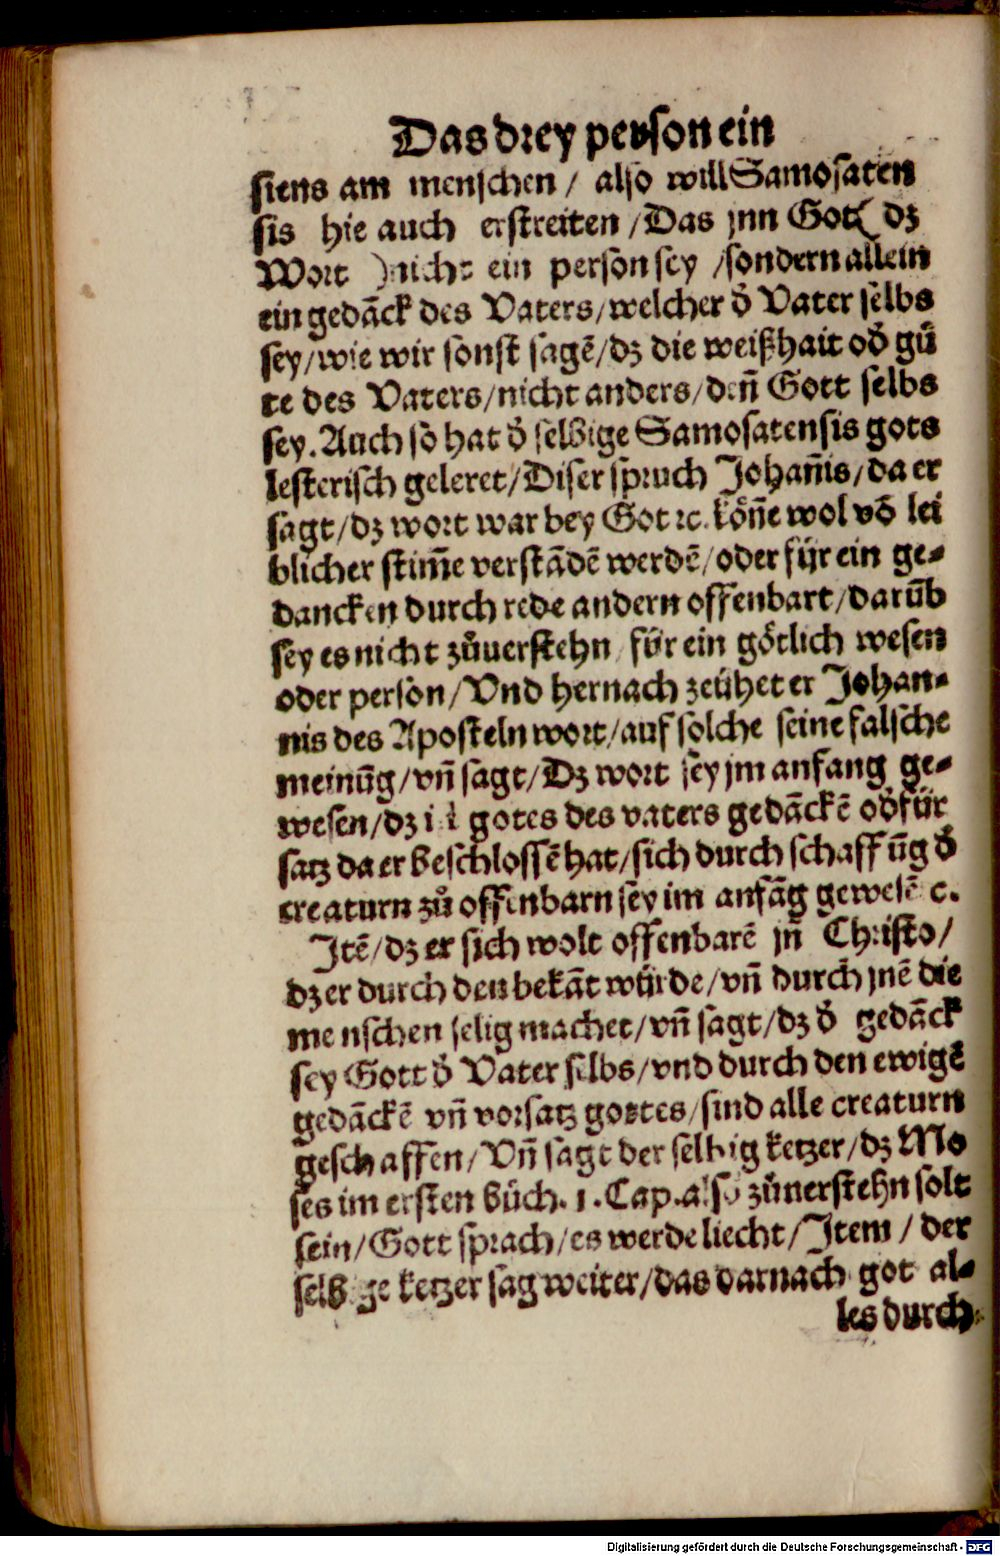 Das drey person ein
siens am menschen / also will Samosaten
sis hie auch erstreiten / Das jnn Got( dz
Wort ) nicht ein person sey / sondern allein
ein gedāck des Vaters / welcher d̄ Vater selbs
sey / wie wir sonst sagē / dz die weißhait od̄ guͤ
te des Vaters / nicht anders / deñ Gott selbs
sey. Auch so hat d̄ selbige Samosatensis gots
lesterisch geleret / Diser spruch Johañis / da er
sagt / dz wort war bey Got ꝛc. koͤñe wol vō lei
blicher stim̄e verstādē werdē / oder fuͤr ein ge⸗
dancken durch rede andern offenbart / darūb
sey es nicht zuͦuerstehn fuͤr ein goͤtlich wesen
oder person / Vnd hernach zeuͤhet er Johan⸗
nis des Aposteln wort / auf solche seine falsche
meinūg / vñ sagt / Dz wort sey jm anfang ge⸗
wesen / dz iſt gotes des vaters gedāckē od̄ fuͤr
satz da er beschlossē hat / sich durch schaffūg d̄
creaturn zuͦ offenbarn sey im anfāg gewesē ꝛc.
Jtē / dz er sich wolt offenbarē jñ Christo /
dz er durch den bekāt wuͤrde / vñ durch jnē die
menschen selig machet / vñ sagt / dz d̄ gedāck
sey Gott d̄ Vater selbs / vnd durch den ewigē
gedāckē vñ vorsatz gottes / sind alle creaturn
geschaffen / Vñ sagt der selbig ketzer / dz Mo
ses im ersten buͤch. 1. Cap. also zuͦuerstehn solt
sein / Gott sprach / es werde liecht / Jtem / der
selbige ketzer sag weiter / das darnach got al⸗
les durch
Digitalisierung gefördert durch die Deutsche Forschungsgemeinschaft - DFG